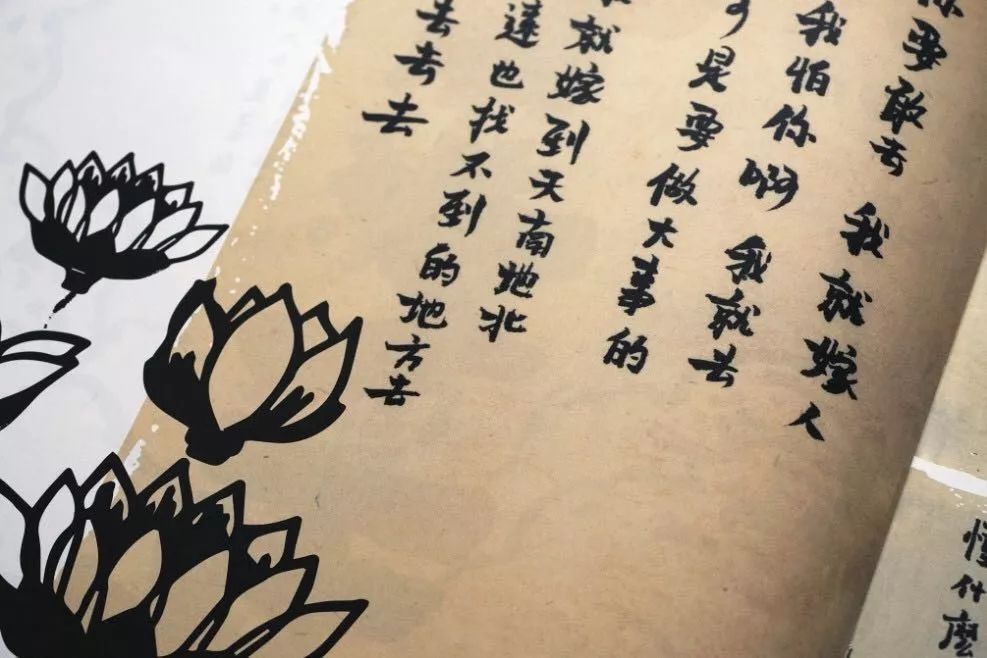 你要敢去 我就嫁人
我怕你啊 我就去
可是要做大事的
就嫁到天南地北
達也找不到的地方去
去去去
懂什麼